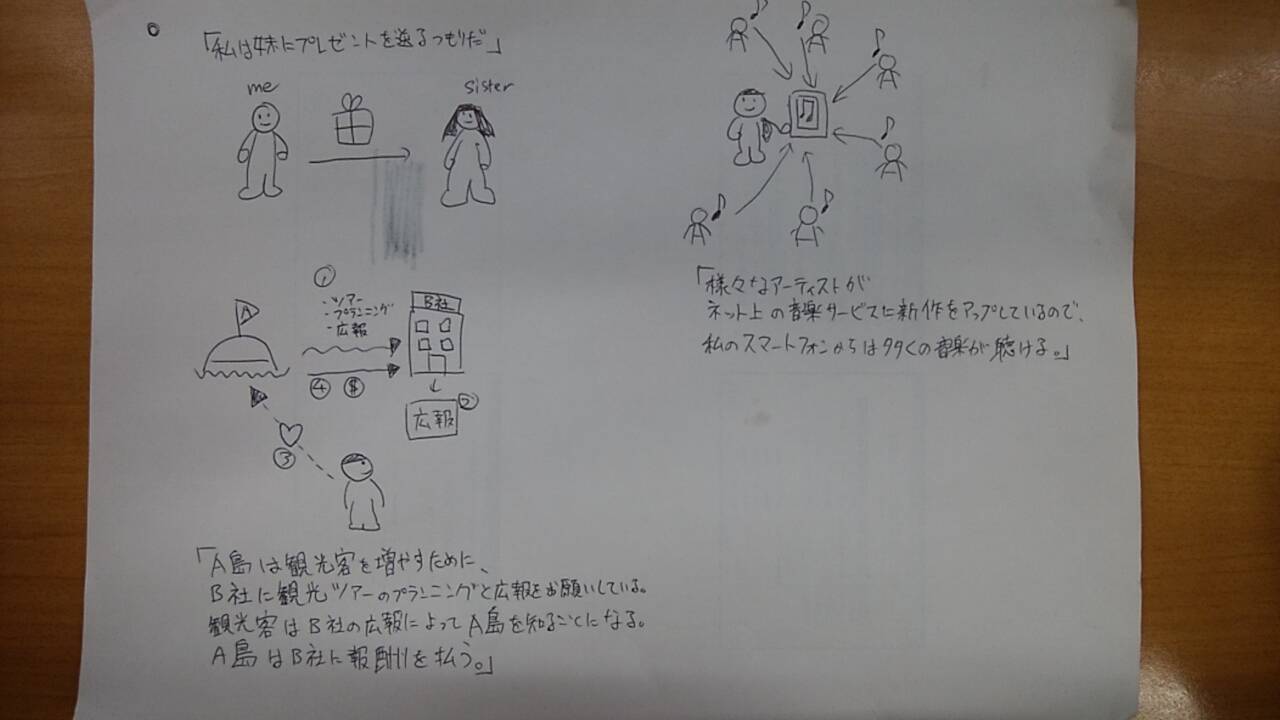 「私は妹にプレゼントを送るつもりだ」
me
sister
①
・ツアー
・プランニング
・広報
A
B社
④ $
広報 ②
③
「A島は観光客を増やすために、
B社に観光ツアーのプランニングと広報をお願いしている。
観光客はB社の広報によってA島を知ることになる。
A島はB社に報酬を払う。」
「様々なアーティストが
ネット上の音楽サービスに新作をアップしているので、
私のスマートフォンからは多くの音楽が聴ける。」